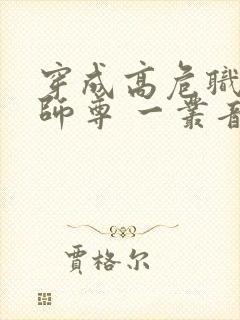 穿成高危職
師尊 一叢音
賈格尔